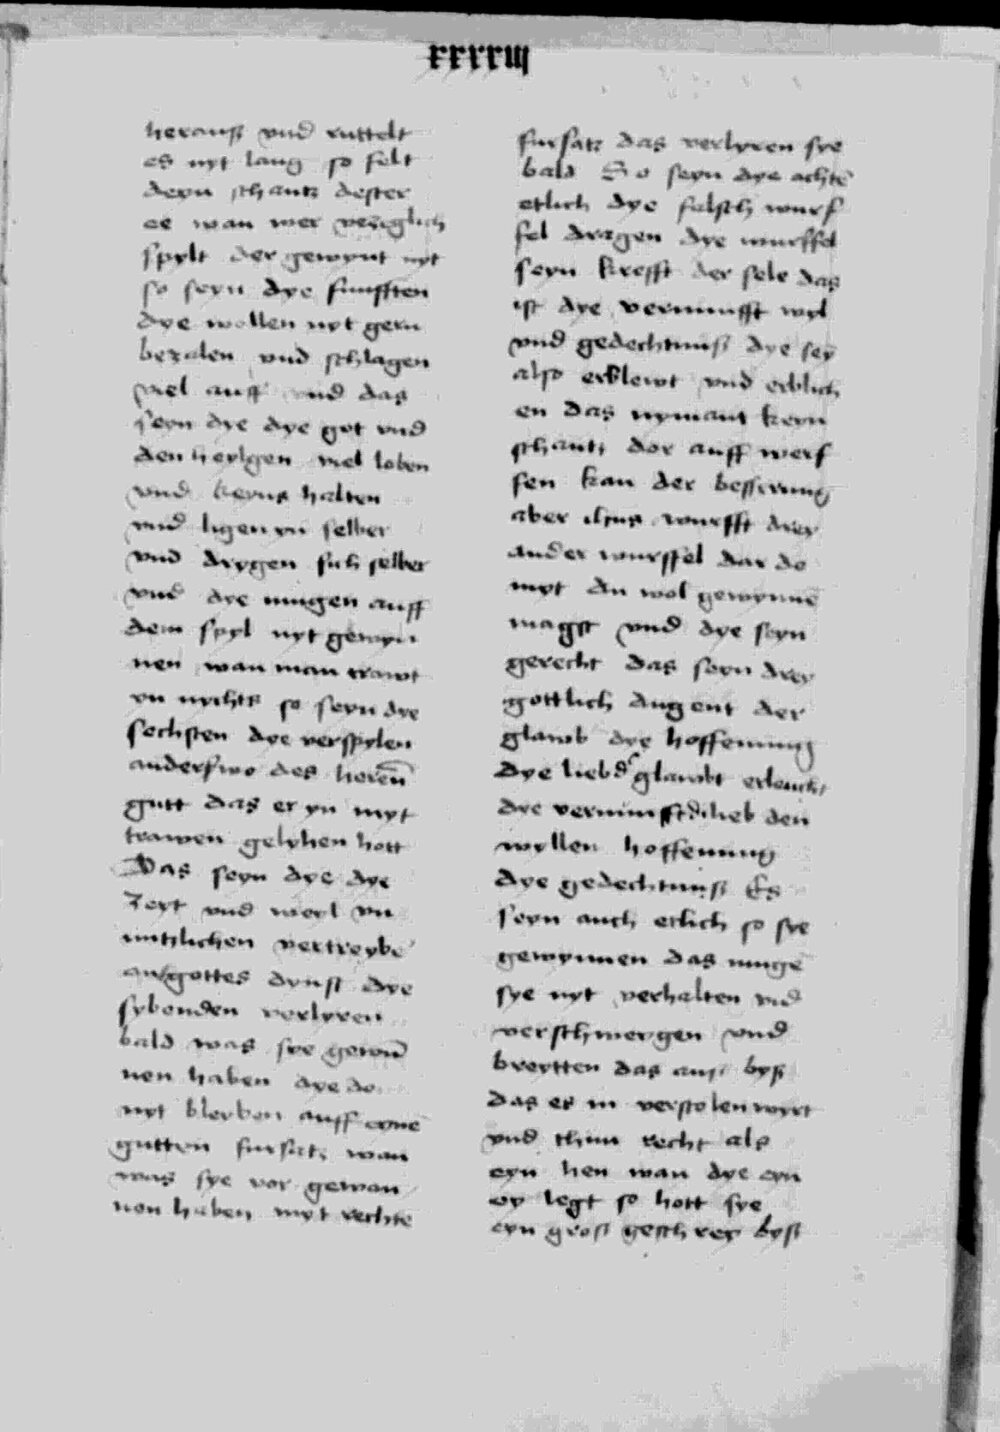 xxxxiii
herauß vnd ruttelt
es nyt lang so felt
deyn schantz dester
ee wan wer verzeglich
spylt der gewynt nyt
so seyn dye funfften
dye wollen nyt gern
bezalen vnd schlagen
viel auff vnd das
seyn dye dye got vnd
den heylgen viel loben
vnd keyns halten
vnd ligen yn selber
vnd drygen sich selber
vnd dye mugen auff
dem spyl nyt gewyn
nen wan man trawt
yn nychts so seyn dye
sechsten dye verspylen
anderswo des heren̄
gutt das er yn myt
trawen gelyhen hott
Das seyn dye dye
zeyt vnd weyl vn
nutzlichen vertreybē
an gottes dynst dye
sybenden verlyren
bald was sye gewū
nen haben dye do
nyt bleyben auff eynē
gutten fursatz wan
was sye vor gewan
nen haben myt rechtē
fursatz das verlyren sye
bald So seyn dye achtē
etlich dye falsch wurf
fel dragen dye wurffel
seyn krefft der sele das
ist dye vernunfft wyl
vnd gedechtnuß dye sey
also erklewt vnd erblich
en das nymant keyn
schantz dor auff werf
fen kan der besserung
aber wurfft drey
ander wurffel dar do
myt du wol gewynnē
magst vnd dye seyn
gerecht das seyn drey
gottlich dugent der
glawb dye hoffennung
dye lieb d' glawbt erleucht
dye vernunfft d' lieb den
wyllen hoffennung
dye gedechtnuß Es
seyn auch etlich so sye
gewynnen das mugē
sye nyt verhalten vnd
verschweygen vnd
breytten das auß byß
das es in verstolen wyrt
vnd thun recht als
eyn hen wan dye eyn
ey legt so hott sye
eyn groß geschrey byß